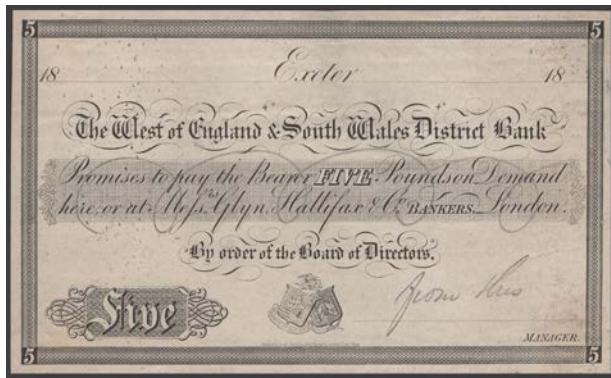 5 5
18 Exeter 18
The West of England & South Wales District Bank
Promises to pay the Bearer FIVE Pounds on Demand
here, or at Messrs. Glyn, Hallifax & Co. BANKERS, London.
By order of the Board of Directors.
Five
MANAGER.
5 5